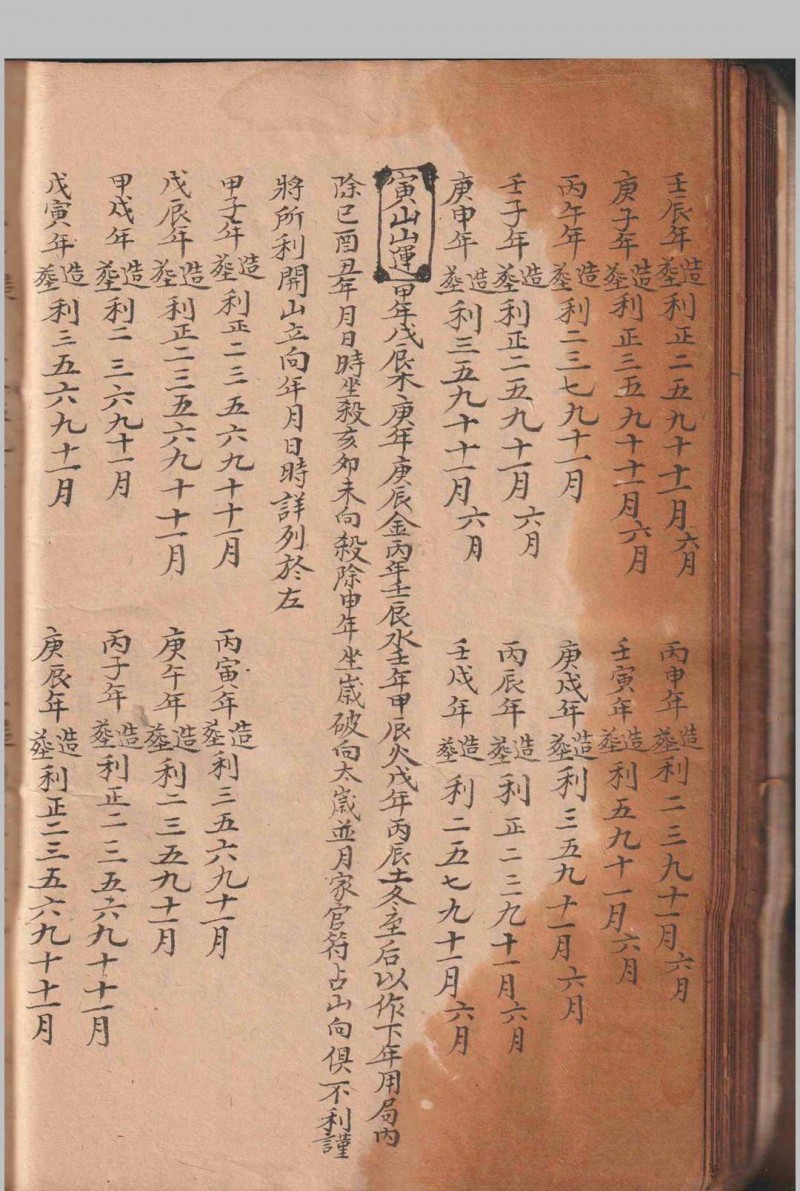 壬辰年造葬利正二五九十十一月六月　丙申年造葬利二三九十一月六月
庚子年造葬利正三五九十十一月六月　壬寅年造葬利五九十一月六月
丙午年造葬利二三七九十一月　庚戌年造葬利三五九十一月六月
壬子年造葬利正二五九十一月六月　丙辰年造葬利正二三九十一月六月
庚申年造葬利三五九十十一月六月　壬戌年造葬利二五七九十一月六月
寅山山運甲年戊辰木庚年庚辰金丙年壬辰水壬年甲辰火戊年丙辰土冬至后以作下年用局內
除巳酉丑年月日時坐殺亥卯未向殺除申年坐歲破向太歲並月家官符占山向俱不利謹
將所利開山立向年月日時詳列於左
甲子年造葬利正二三五六九十十一月　丙寅年造葬利三五六九十一月
戊辰年造葬利正二三五六九十十一月　庚午年造葬利二三五九十一月
甲戌年造葬利二三六九十一月　丙子年造葬利正二三五六九十十一月
戊寅年造葬利三五六九十一月　庚辰年造葬利正二三五六九十十一月